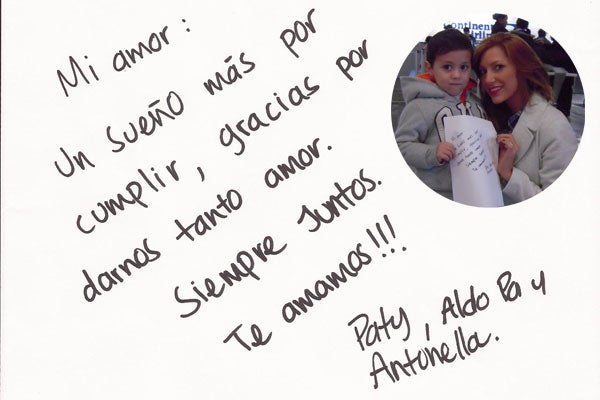 Mi amor:
Un sueño más por
cumplir, gracias por
darnos tanto amor.
Siempre Juntos.
Te amamos!!!
Paty, Aldo Pa y
Antonella.
Continental